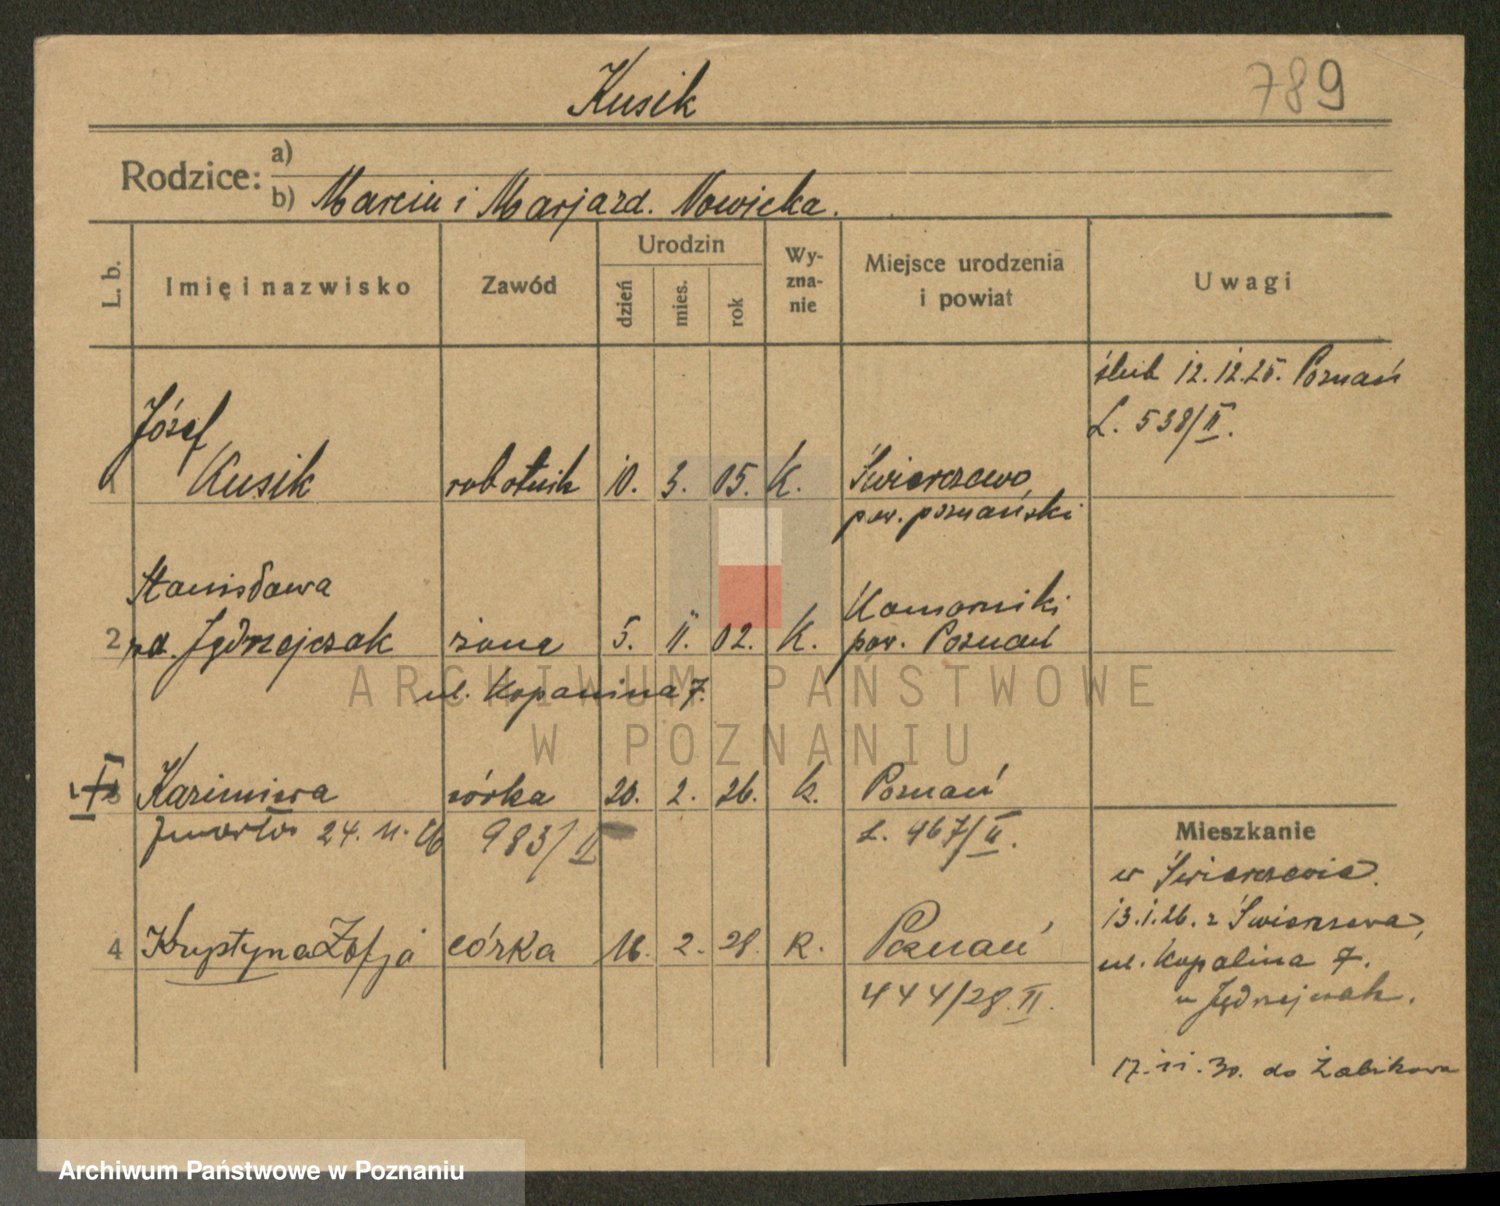 Kusik
789
Rodzice:
a)
b) Marcin i Marja zd. Nowicka.
L. b.
Imię i nazwisko
Zawód
Urodzin
dzień
mies.
rok
Wy-
zna-
nie
Miejsce urodzenia
i powiat
Uwagi
ślub 12.12.25. Poznań
L. 538/II.
Józef
1 Kusik robotnik 10. 3. 05. K. Świerczewo
pow. poznański
Stanisława
2 zd. Jędrzejczak żona 5. 11. 02. K. Komorniki
pow. Poznań
ul. Kopanina 7.
3 Kazimiera córka 20. 2. 26. K. Poznań
zmarła 24. 11. 26 983/II L. 467/II.
4 Krystyna Zofja córka 16. 2. 28. K. Poznań
444/28. II.
Mieszkanie
w Świerczewie.
13.1.26. z Świerczewa,
ul. Kopalina 7.
u Jędrzejczak.
17. 11. 30. do Żabikowa
ARCHIWUM PAŃSTWOWE
W POZNANIU
Archiwum Państwowe w Poznaniu